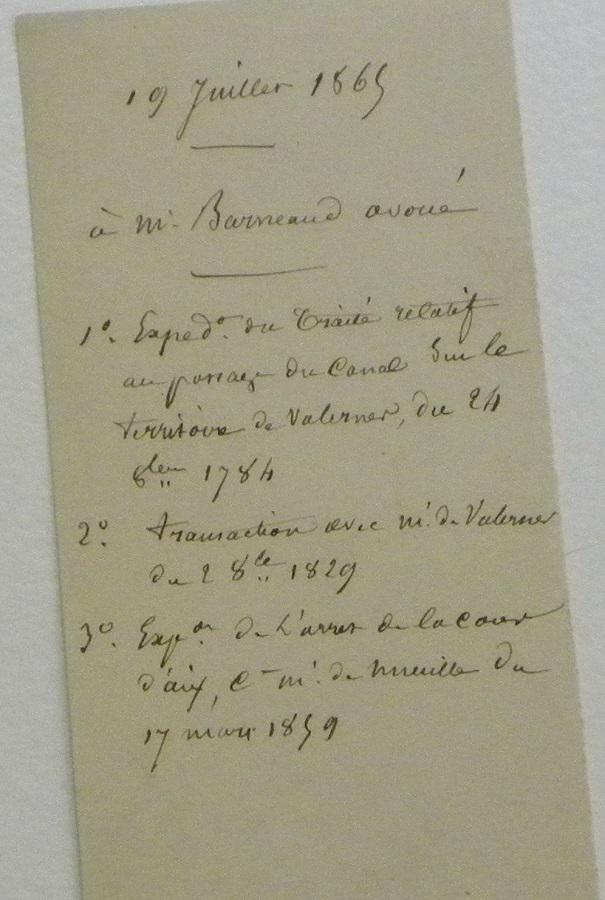 19 Juillet 1865
à Mr. Barneaud avoué
1º. Exped.on du Traité relatif
au passage du Canal Sur le
territoire de Valernes, du 24
8bre 1784
2º. transaction avec Mr. de Valernes
du 2 8bre 1829
3º. Exp.on de L'arret de la cour
d'aix, C- Mr. de du
17 mars 1859